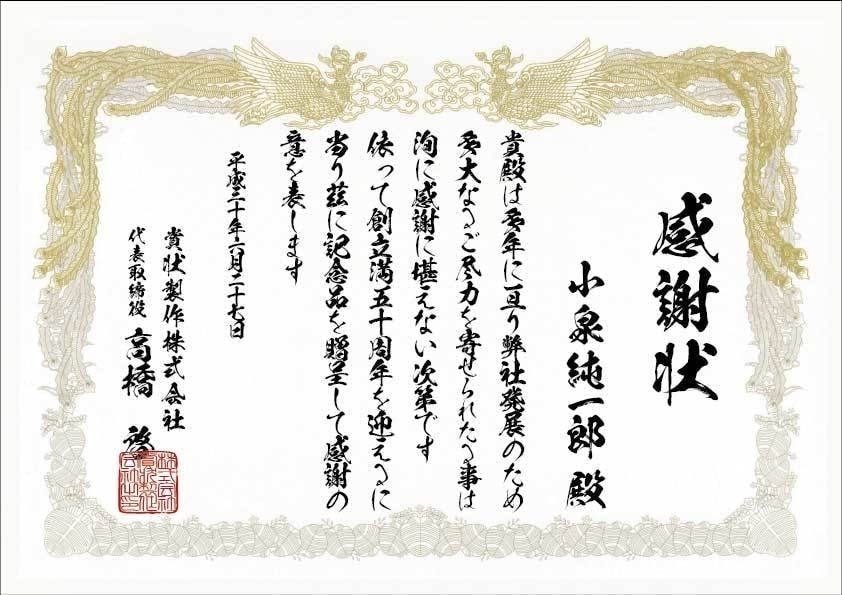 感謝状
小泉純一郎 殿
貴殿は多年に亘り弊社発展のため
多大なるご尽力を寄せられたる事は
洵に感謝に堪えない次第です
依って創立満五十周年を迎えるに
当り茲に記念品を贈呈して感謝の
意を表します
平成二十年六月二十七日
賞状製作株式会社
代表取締役 高橋 啓